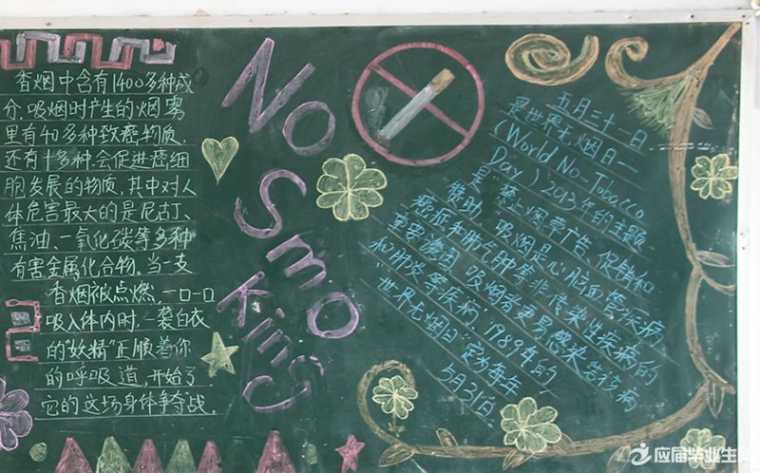 香烟中含有1400多种成
分.吸烟时产生的烟雾
里有40多种致癌物质.
还有十多种会促进癌细
胞发展的物质,其中对人
体危害最大的是尼古丁、
焦油、一氧化碳等多种
有害金属化合物.当一支
香烟被点燃,一口一口
吸入体内时,一袭白衣
的"妖精"正顺着你
的呼吸道,开始了
它的这场身体争战.
No
Smo
king
五月三十一日
是世界无烟日—
(World No-Tobacco
Day)2013年的主题
是"禁止烟草广告、促销和
赞助,吸烟是心脑血管疾病、
癌症和肺气肿等非传染性疾病的
重要 吸烟者更易感染
和肺炎等疾病,1989年的
"世界无烟日"定为每年
5月31日
应届毕业生